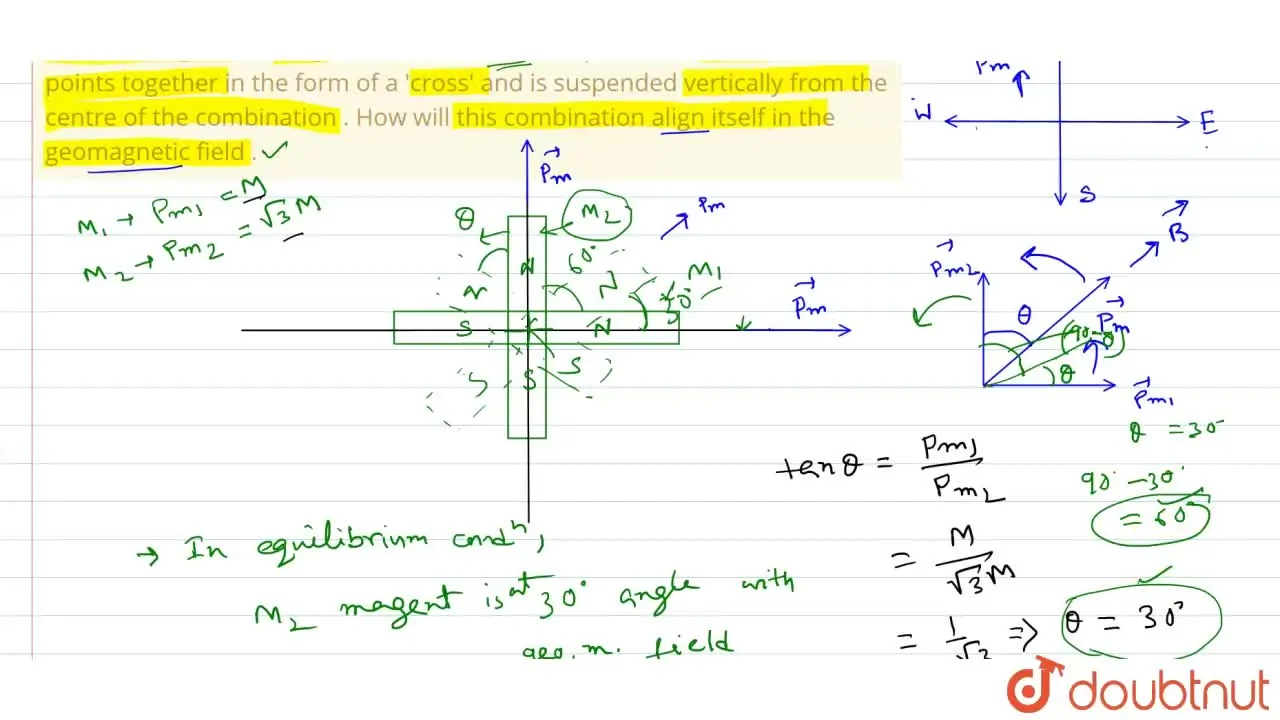 points together in the form of a 'cross' and is suspended vertically from the
centre of the combination . How will this combination align itself in the
geomagnetic field .
Pm
W
E
S
M1 → Pm1 = M
M2 → Pm2 = √3 M
Pm
θ
M2
Pm
60°
N
N
N
M1
30°
Pm
S
N
S
S
S
Pm2
θ
B
Pm
(90-θ)
θ
Pm1
θ = 30°
90° - 30°
= 60°
tan θ = Pm1
Pm2
= M
√3 M
= 1 ⇒ θ = 30°
√3
→ In equilibrium condn,
M2 magent is at 30° angle with
geo. m. field
doubtnut